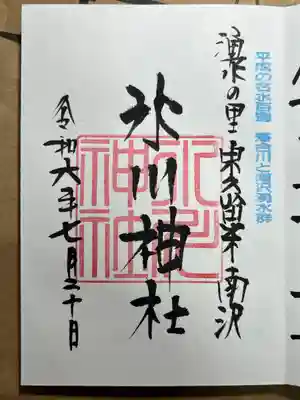 平成の名水百選 落合川と南沢湧水群
湧水の里 東久留米 南沢
氷川神社
氷川
神社
令和六年七月二十日